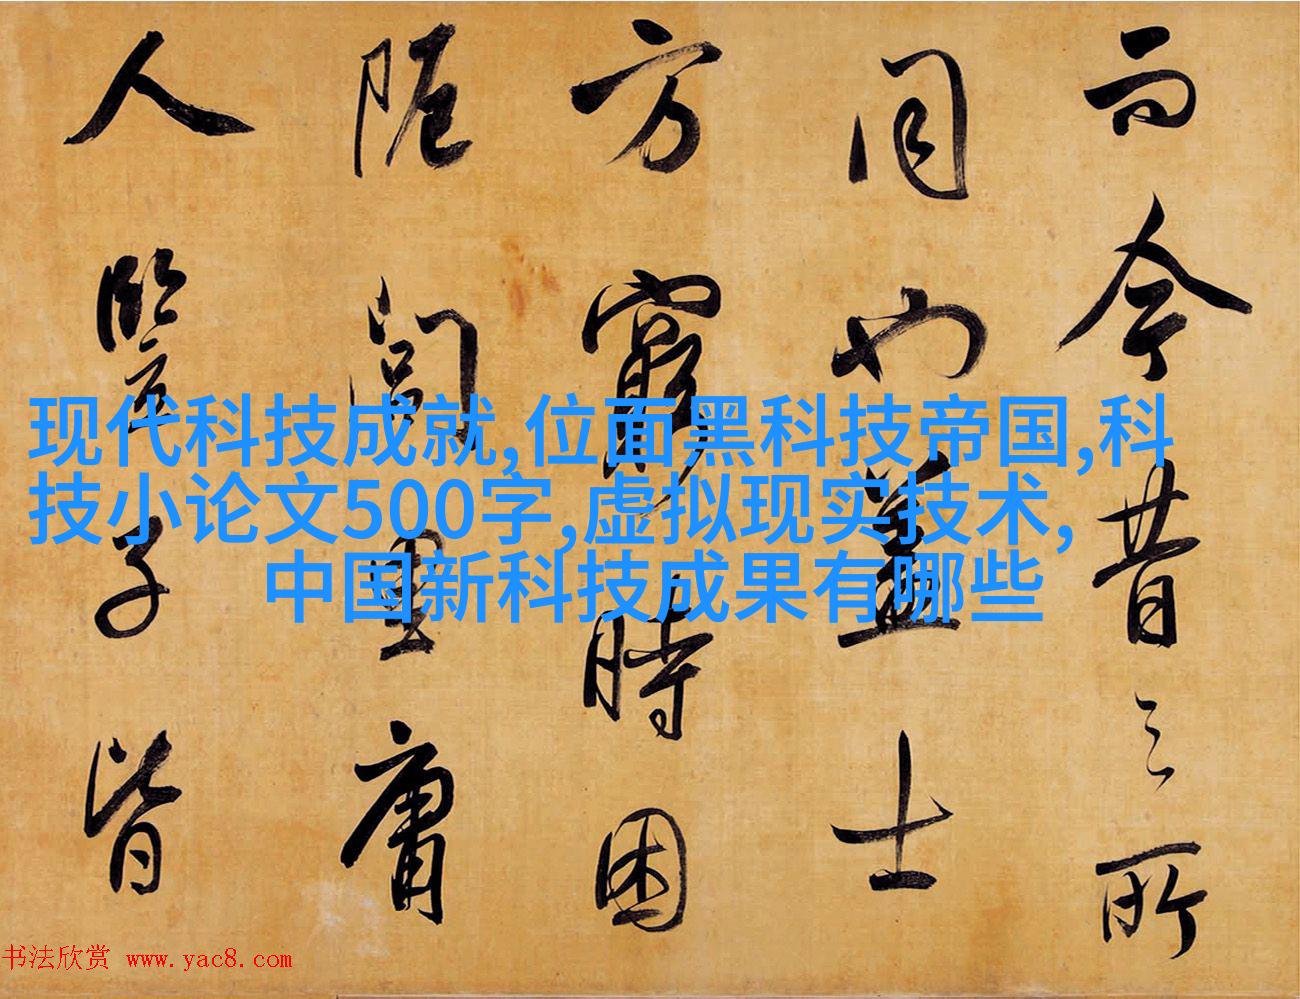 而今昔之所
同也蓋士
方窮時困
阨閭里庸
人豎子皆
现代科技成就,位面黑科技帝国,科
技小论文500字,虚拟现实技术,
中国新科技成果有哪些
书法欣赏 www.yac8.com